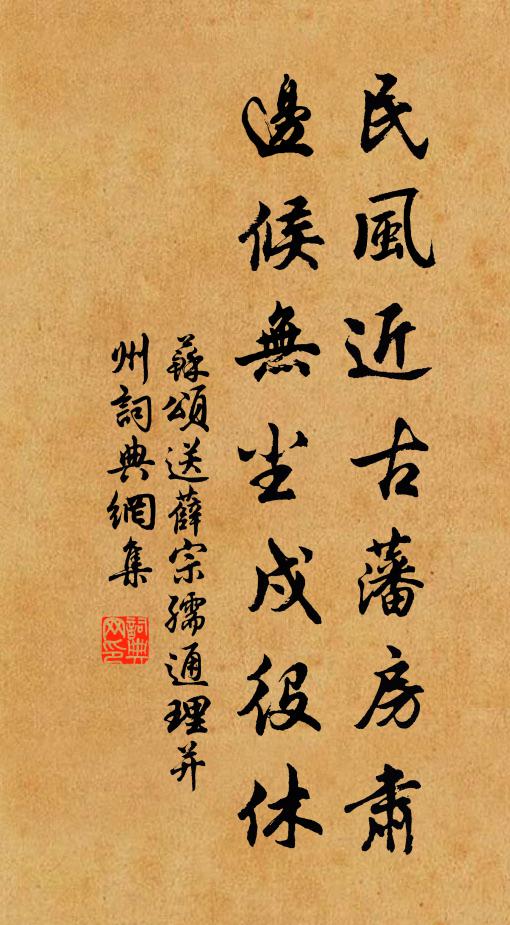 民風近古藩房肅
邊候無尘戍役休
蘇頌送薛宗孺通理并
州詞典網集
詞典网印